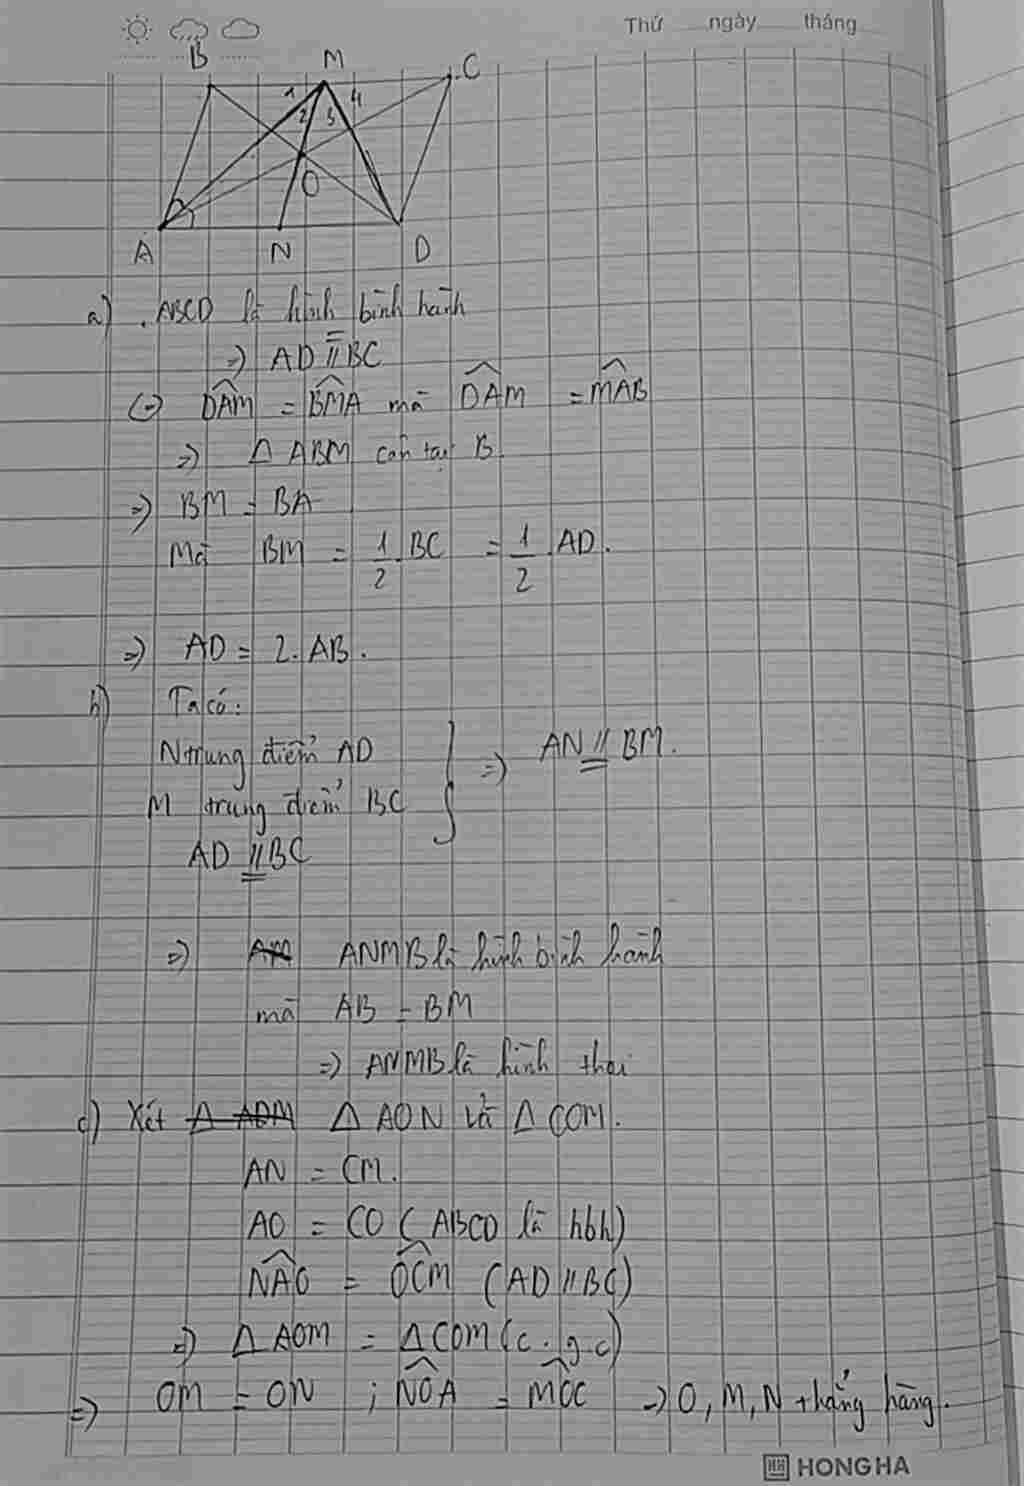 Thứ ngày tháng
B M C
1 2 3 4
O
A N D
a) . ABCD là hình bình hành
=> AD // BC
(=) DAM = BMA mà DAM = MAB
=> Δ ABM cân tại B
=> BM = BA
Mà BM = 1/2 . BC = 1/2 . AD.
=> AD = 2. AB.
b) Ta có:
N trung điểm AD
M trung điểm BC
AD // BC
=> AN // BM.
=> AM ANMB là hình bình hành
mà AB = BM
=> ANMB là hình thoi
c) Xét Δ ADM Δ AON và Δ COM.
AN = CM.
AO = CO (ABCD là hbh)
NAO = OCM (AD // BC)
=> Δ AOM = Δ COM (c.g.c)
=> OM = ON ; NOA = MOC -> O, M, N thẳng hàng.
HH HONG HA